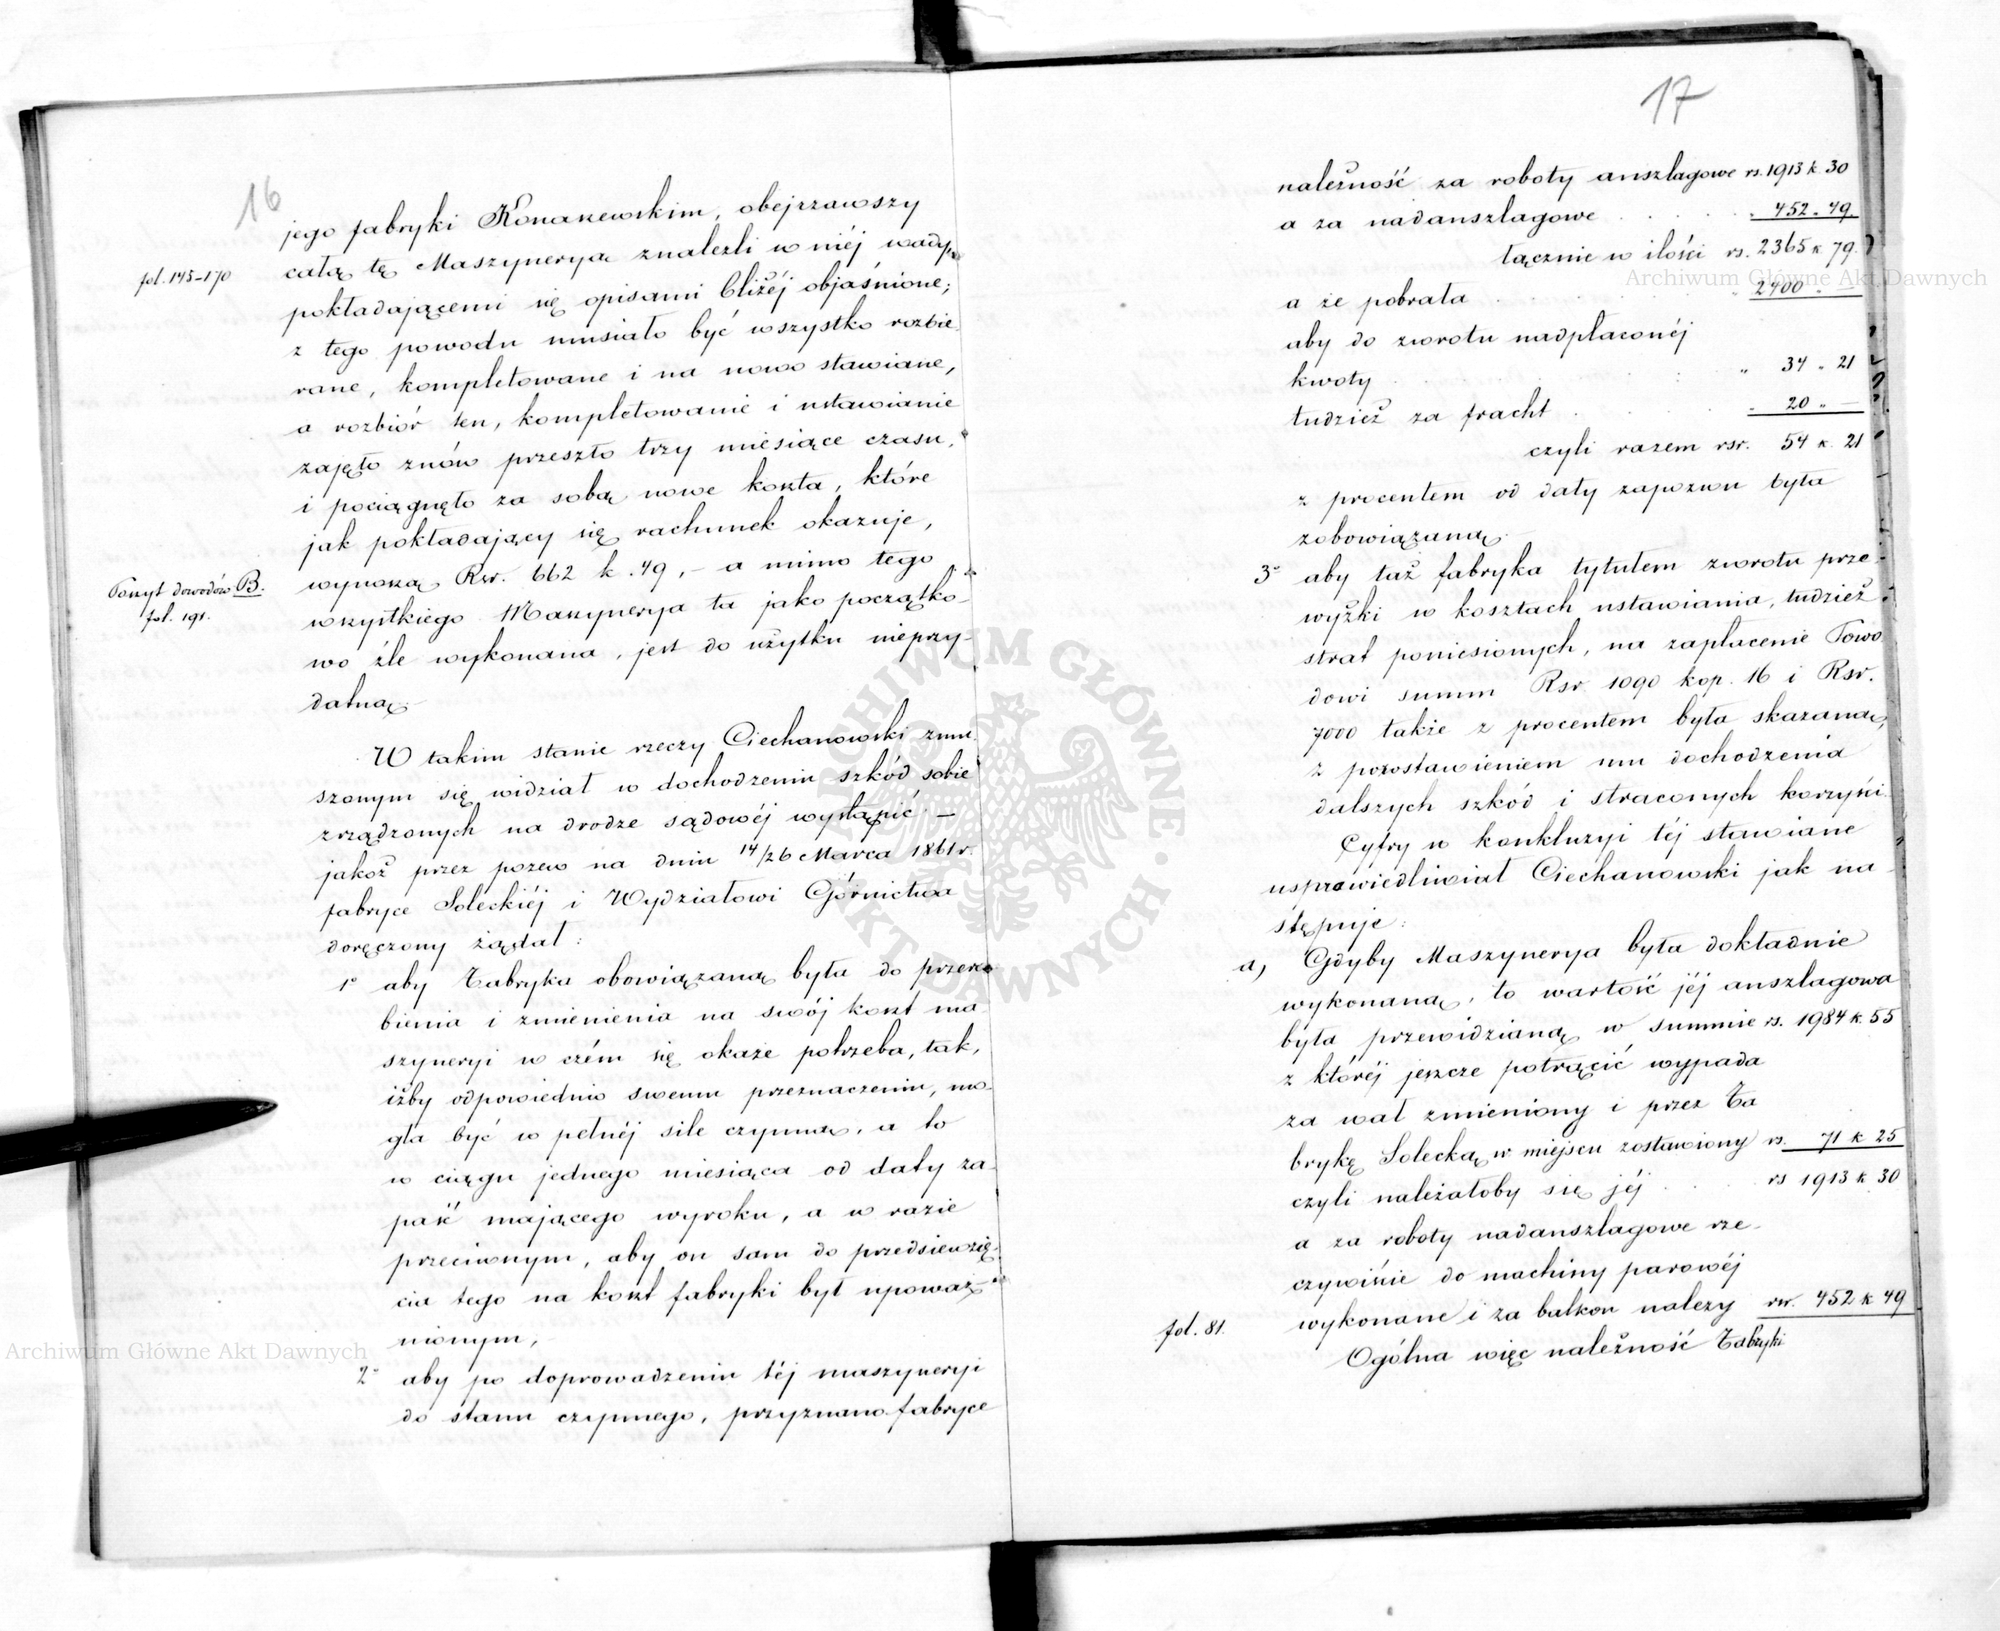 16
jego fabryki Konarzewskim, obejrzawszy
fol. 145-170
całą tę Maszynerya znaleźli w niéj wady,
pokładającemi się opisami bliżéj objaśnione;
z tego powodu musiało być wszystko rozbie-
rane, kompletowane i na nowo stawiane,
a rozbiór ten, kompletowanie i ustawianie
zajęło znów przeszło trzy miesiące czasu,
i pociągnęło za sobą nowe koszta, które
jak pokładający się rachunek okazuje,
Poszyt dowodów B.
fol. 191.
wynoszą Rsr. 662 k. 49, – a mimo tego
wszystkiego Maszynerya ta jako początko-
wo źle wykonana, jest do użytku nieprzy-
datną.
W takim stanie rzeczy Ciechanowski zmu
szonym się widział w dochodzeniu szkód sobie
zrządzonych na drodze sądowéj wystąpić –
jakoż przez pozew na dniu 14/26 Marca 1861 r.
fabryce Soleckiéj i Wydziałowi Górnictwa
doręczony żądał:
1° aby Fabryka obowiązaną była do przero
bienia i zmienienia na swój koszt ma-
szyneryi w czém się okaże potrzeba, tak,
iżby odpowiednio swemu przeznaczeniu, mo-
gła być w pełnéj sile czynną, a to
w ciągu jednego miesiąca od daty za-
paść mającego wyroku, a w razie
przeciwnym, aby on sam do przedsięwzię-
cia tego na koszt fabryki był upoważ-
nionym,
2° aby po doprowadzeniu téj maszyneryi
do stanu czynnego, przyznano fabryce
17
należność za roboty anszlagowe rs. 1913 k. 30
a za nadanszlagowe . . . . „ 452 „ 49
łącznie w ilości rs. 2365 k. 79.
a że pobrała . . . . „ 2400 „ —
aby do zwrotu nadpłaconéj
kwoty . . . . „ 34 „ 21
tudzież za fracht . . . „ 20 „ —
czyli razem rsr. 54 k. 21
z procentem od daty zapozwu była
zobowiązaną.
3° aby taż fabryka tytułem zwrotu prze-
wyżki w kosztach ustawiania, tudzież
strat poniesionych, na zapłacenie Powo
dowi summ Rsr 1090 kop. 16 i Rsr.
7000 także z procentem była skazaną,
z pozostawieniem mu dochodzenia
dalszych szkód i straconych korzyści.
Cyfry w konkluzyi téj stawiane
usprawiedliwiał Ciechanowski jak na-
stępuje:
a, Gdyby Maszynerya była dokładnie
wykonaną, to wartość jéj anszlagowa
była przewidzianą w summie rs. 1984 k. 55
z któréj jeszcze potrącić wypada
za wał zmieniony i przez Fa
brykę Solecką w miejscu zostawiony rs. 71 k 25
czyli należałoby się jéj . . . rs 1913 k 30
a za roboty nadanszlagowe rze-
czywiście do machiny parowéj
fol. 81.
wykonane i za balkon należy rsr. 452 k 49
Ogólna więc należność Fabryki
Archiwum Główne Akt Dawnych
Archiwum Główne Akt Dawnych
ARCHIWUM GŁÓWNE AKT DAWNYCH